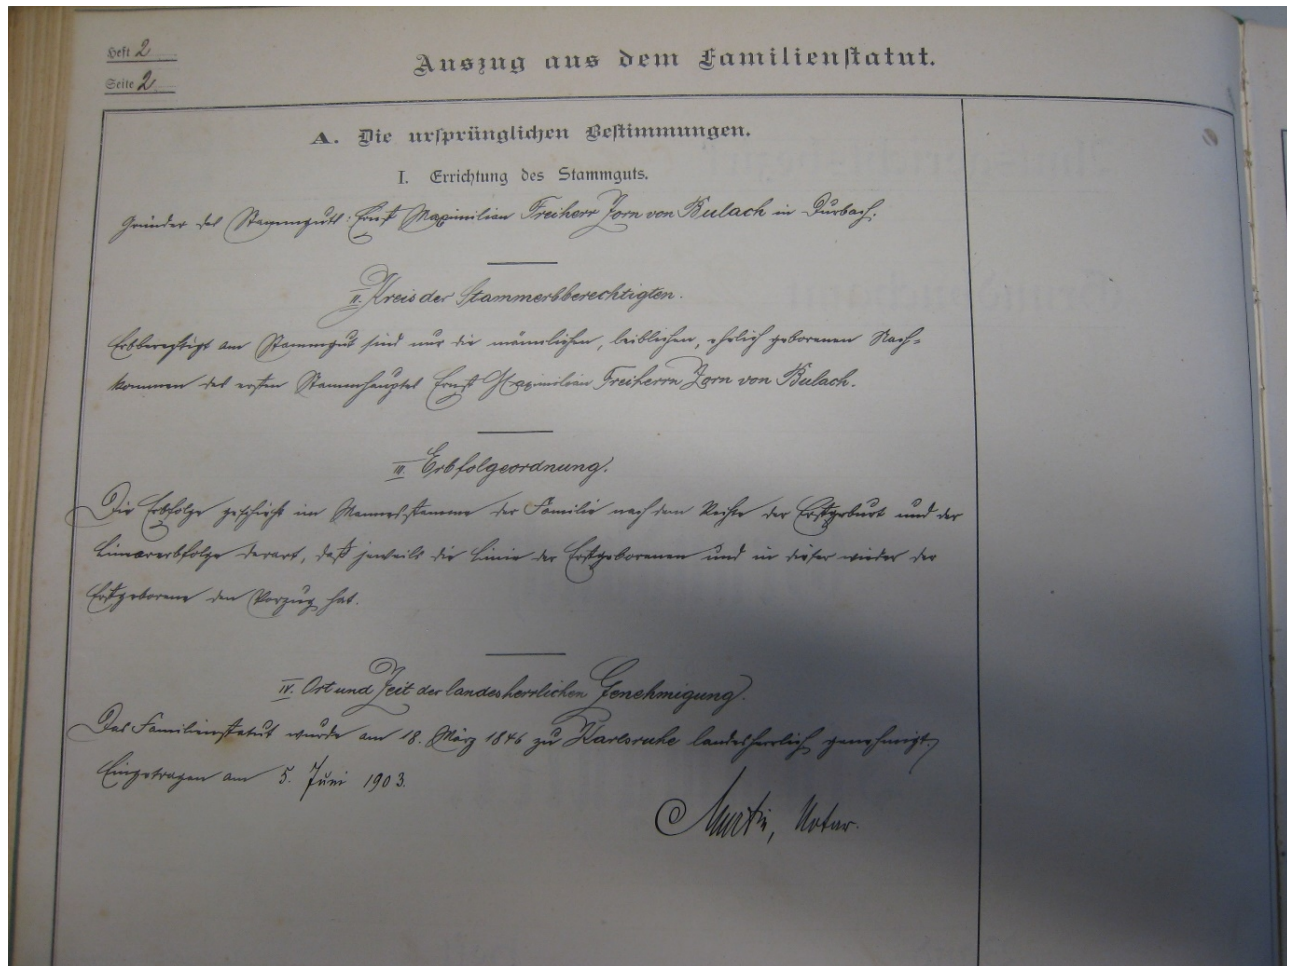 Heft 2
Seite 2
Auszug aus dem Familienstatut.
A. Die ursprünglichen Bestimmungen.
I. Errichtung des Stammguts.
Gründer des Stammguts: Ernst Maximilian Freiherr Zorn von Bulach in Durbach.
II. Kreis der Stammerbberechtigten.
Erbberechtigt am Stammgut sind nur die männlichen, leiblichen, ehelich geborenen Nach-
kommen des ersten Stammhauptes Ernst Maximilian Freiherrn Zorn von Bulach.
III. Erbfolgeordnung.
Die Erbfolge geschieht im Mannesstamme der Familie nach dem Rechte der Erstgeburt und der
Linearerbfolge derart, daß jeweils die Linie der Erstgeborenen und in dieser wieder der
Erstgeborene den Vorzug hat.
IV. Ort und Zeit der landesherrlichen Genehmigung.
Das Familienstatut wurde am 18. März 1846 zu Karlsruhe landesherrlich genehmigt.
Eingetragen am 5. Juni 1903.
Martin, Notar.